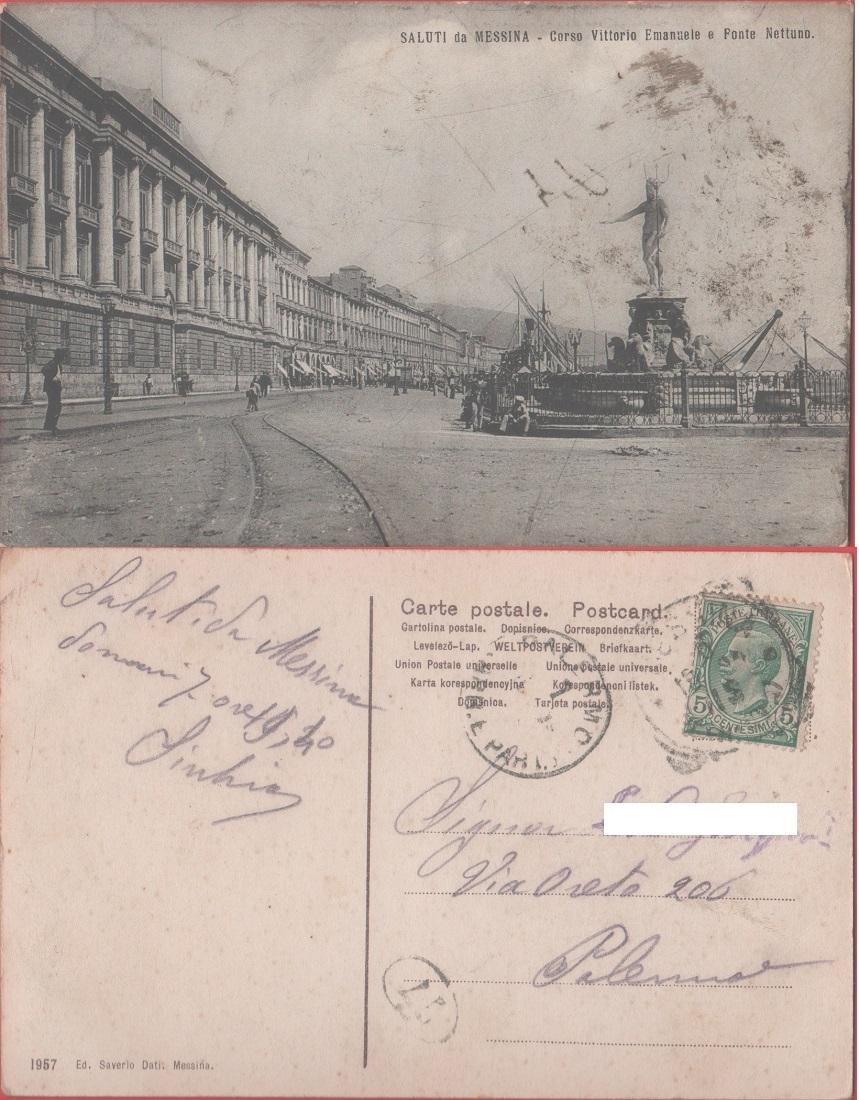 SALUTI da MESSINA - Corso Vittorio Emanuele e Fonte Nettuno.
Saluti da Messina
domani 7 ore
Carte postale. Postcard.
Cartolina postale. Dopisnice. Correspondenzkarte.
Levelező-Lap. WELTPOSTVEREIN Briefkaart.
Union Postale universelle Unione postale universale
Karta korespondencyjna Korespondenoni listek.
Domänica. Tarjeta postale.
PALERMO
POSTE ITALIANE
5 CENTESIMI 5
Signor
Via Oreto 206
Palermo
1957 Ed. Saverio Dati. Messina.